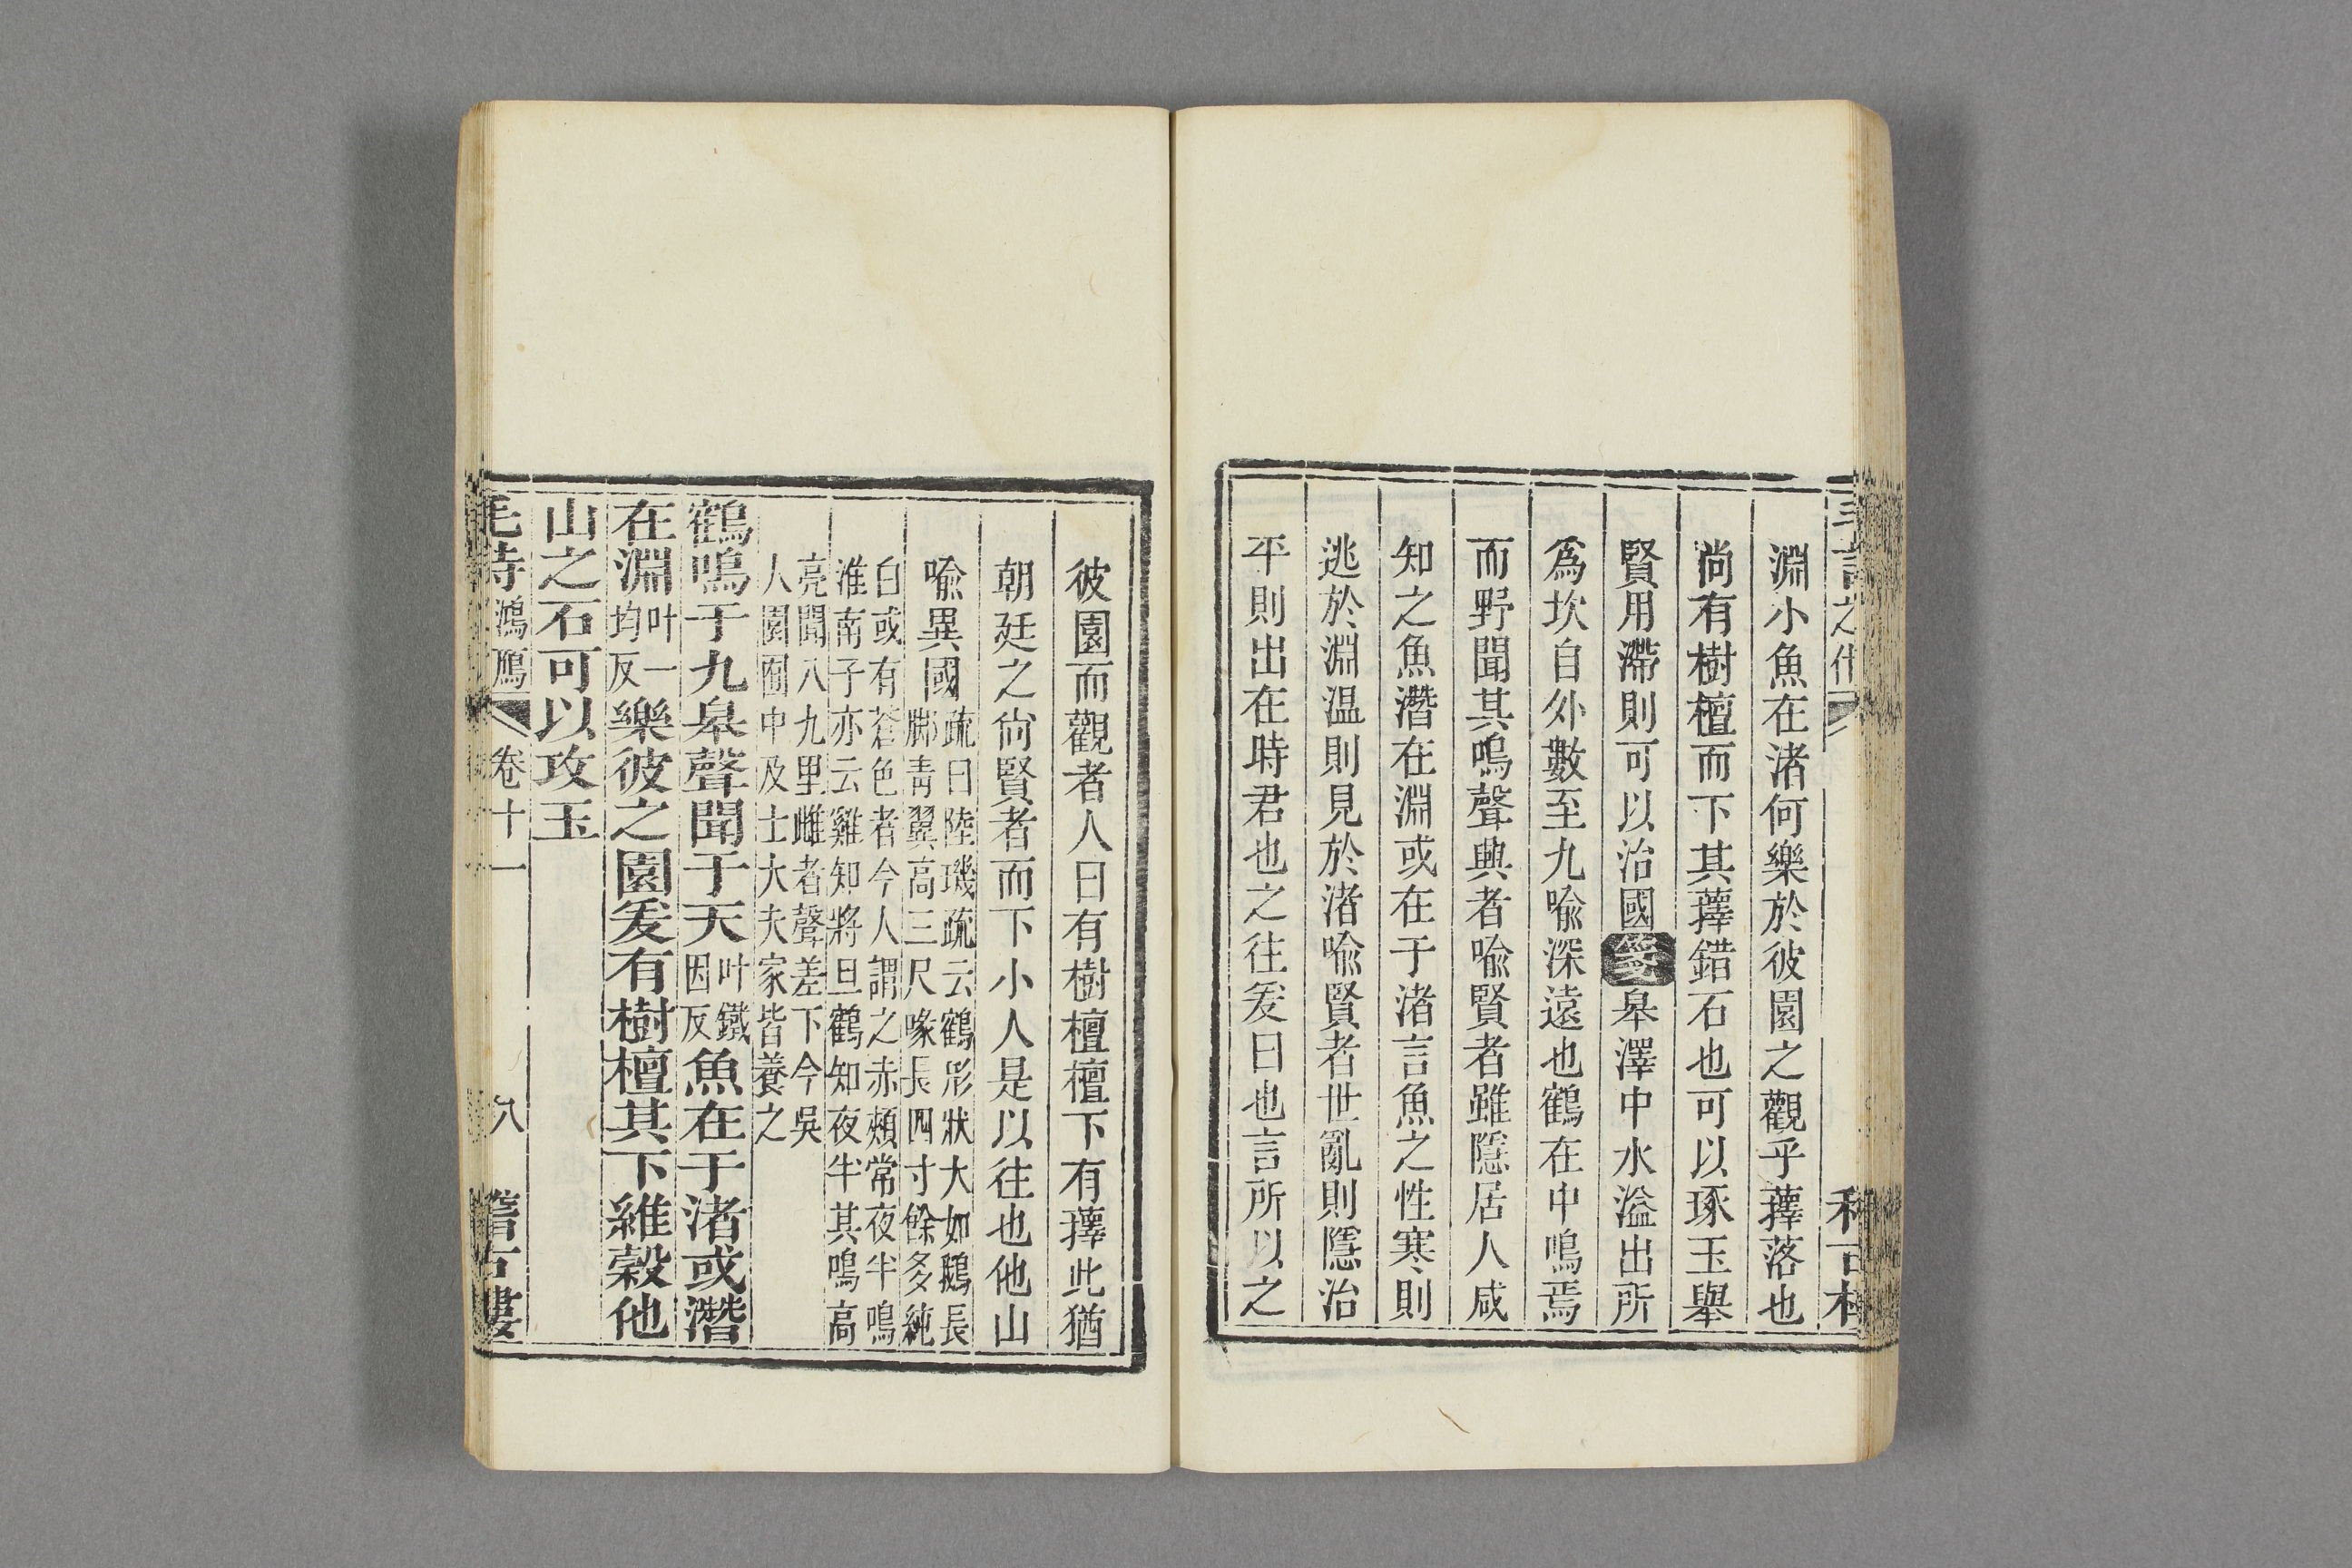 淵小魚在渚何樂於彼園之觀乎蘀落也
尚有樹檀而下其蘀錯石也可以琢玉舉
賢用滯則可以治國箋皋澤中水溢出所
為坎自外數至九喻深遠也鶴在中鳴焉
而野聞其鳴聲興者喻賢者雖隱居人咸
知之魚潛在淵或在于渚言魚之性寒則
逃於淵温則見於渚喻賢者世亂則隱治
平則出在時君也之往爰曰也言所以之
彼園而觀者人曰有樹檀檀下有蘀此猶
朝廷之尙賢者而下小人是以往也他山
喻異國
疏曰陸璣疏云鶴形狀大如鵝長
脚靑翼高三尺喙長四寸餘多純
白或有蒼色者今人謂之赤頰常夜半鳴
淮南子亦云雞知將旦鶴知夜半其鳴高
亮聞八九里雌者聲差下今吳
人園囿中及士大夫家皆養之
鶴鳴于九皋聲聞于天叶鐵因反魚在于渚或潛
在淵叶一均反樂彼之園爰有樹檀其下維榖他
山之石可以攻玉
毛詩 鴻鴈 卷十一 八 稽古樓